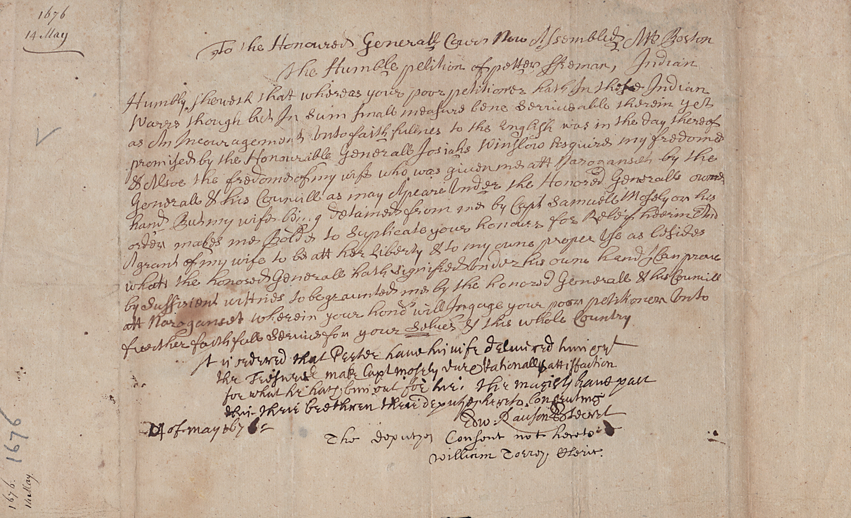 1676
14 May
To the Honoured Generall Court Now Assembled Att Boston
The Humble petition of petter Indian
Humbly sheweth that whereas your poor petitioner hath In these Indian
Warrs though but In sum small measure bene serviceable therein yet
as An Incouragement unto faithfulnes to the English was in the day thereof
promised by the Honourible Generall Josiah Winslow Esquire my freedome
& Alsoe the freedome of my wife who was given me att Naroganset by the
Generall & his Councill as may Apeare Under the Honored Generalls owne
hand But my wife Being detained from me by Capt Samuell Mosely or his
order makes me Bold to suplicate your honours for Releif herein And
A grant of my wife to be att her Liberty & to my owne proper use as besides
what the honored Generall hath signified Under his owne hand I Can prove
by sufficient witnes to be graunted me by the honored Generall & his Councill
att Naroganset wherein your hono'rs will Ingage your poor petitioner Unto
further faithfull Service for your Selves & this whole Country
It is ordered that Peeter have his wife delivered him
the Tresurer make Capt Mosely sattisfaction
for what he hath bin out for her. The magists have past
this their brethren the deputyes hereto Consenting
14 of may 1676
Edw. Rawson Secret
The deputyes Consent not hereto
William Torrey Cleric.
1676
1676.
14 May